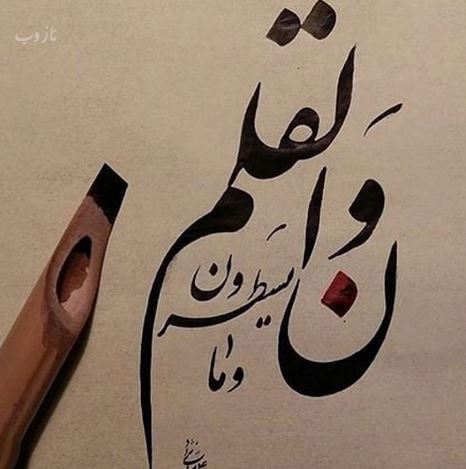 نازوب
ن وَالقلم
وما یسطرون